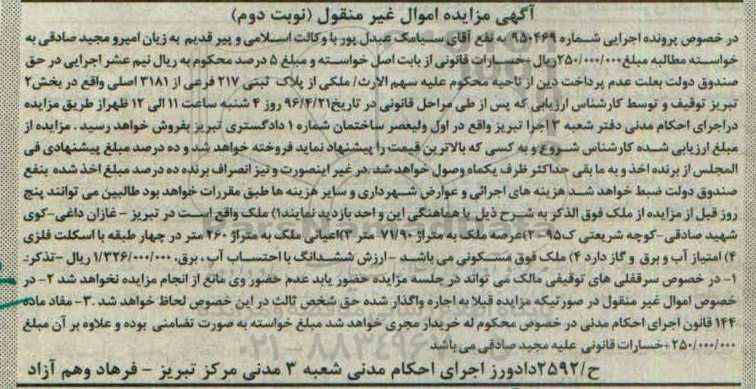 آگهی مزایده اموال غیر منقول (نوبت دوم)
در خصوص پرونده اجرایی شماره ۹۵۰۴۶۹ به نفع آقای سیامک عبدل پور با وکالت اسلامی و پیر قدیم به زیان امیرو مجید صادقی به
خواسته مطالبه مبلغ ۲۵۰/۰۰۰/۰۰۰ریال +خسارات قانونی از بابت اصل خواسته و مبلغ ۵ درصد محکوم به ریال نیم عشر اجرایی در حق
صندوق دولت بعلت عدم پرداخت دین از ناحیه محکوم علیه سهم الارث/ ملکی از پلاک ثبتی ۲۱۷ فرعی از ۳۱۸۱ اصلی واقع در بخش۲
تبریز توقیف و توسط کارشناس ارزیابی که پس از طی مراحل قانونی در تاریخ۹۶/۴/۲۱ روز ۴ شنبه ساعت ۱۱ الی ۱۲ ظهراز طریق مزایده
دراجرای احکام مدنی دفتر شعبه ۳ اجرا تبریز واقع در اول ولیعصر ساختمان شماره ۱ دادگستری تبریز بفروش خواهد رسید . مزایده از
مبلغ ارزیابی شده کارشناس شروع و به کسی که بالاترین قیمت را پیشنهاد نماید فروخته خواهد شد و ده درصد مبلغ پیشنهادی فی
المجلس از برنده اخذ و به ما بقی حداکثر ظرف یکماه وصول خواهدشد .در غیر اینصورت و نیز انصراف برنده ده درصد مبلغ اخذ شده بنفع
صندوق دولت ضبط خواهد شد هزینه های اجرائی و عوارض شهرداری و سایر هزینه ها طبق مقررات خواهد بود طالبین می توانند پنج
روز قبل از مزایده از ملک فوق الذکر به شرح ذیل با هماهنگی این و احد بازدید نمایند۱) ملک واقع است در تبریز - غازان داغی-کوی
شهید صادقی-کوچه شریعتی ک۹۵-۲)عرصه ملک به متراژ ۷۱/۹۰ متر ۳)اعیانی ملک به متراژ ۲۶۰ متر در چهار طبقه با اسکلت فلزی
۴) امتیاز آب و برق و گاز دارد ۴) ملک فوق مسکونی می باشد - ارزش ششدانگ با احتساب آب ، برق، ۱/۳۲۶/۰۰۰/۰۰۰ ریال -تذکر:
۱- در خصوص سرقفلی های توقیفی مالک می تواند در جلسه مزایده حضور یابد عدم حضور وی مانع از انجام مزایده نخواهد شد ۲- در
خصوص اموال غیر منقول در صورتیکه مزایده قبلا به اجاره واگذار شده حق شخص ثالث در این خصوص لحاظ خواهد شد .۳- مفاد ماده
۱۴۴ قانون اجرای احکام مدنی در خصوص محکوم له خریدار مجری خواهد شد مبلغ خواسته به صورت تضامنی بوده و علاوه بر آن مبلغ
۲۵۰/۰۰۰/۰۰۰+خسارات قانونی علیه مجید صادقی می باشد
ح/۲۵۹۲دادورز اجرای احکام مدنی شعبه ۳ مدنی مرکز تبریز - فرهاد وهم آزاد